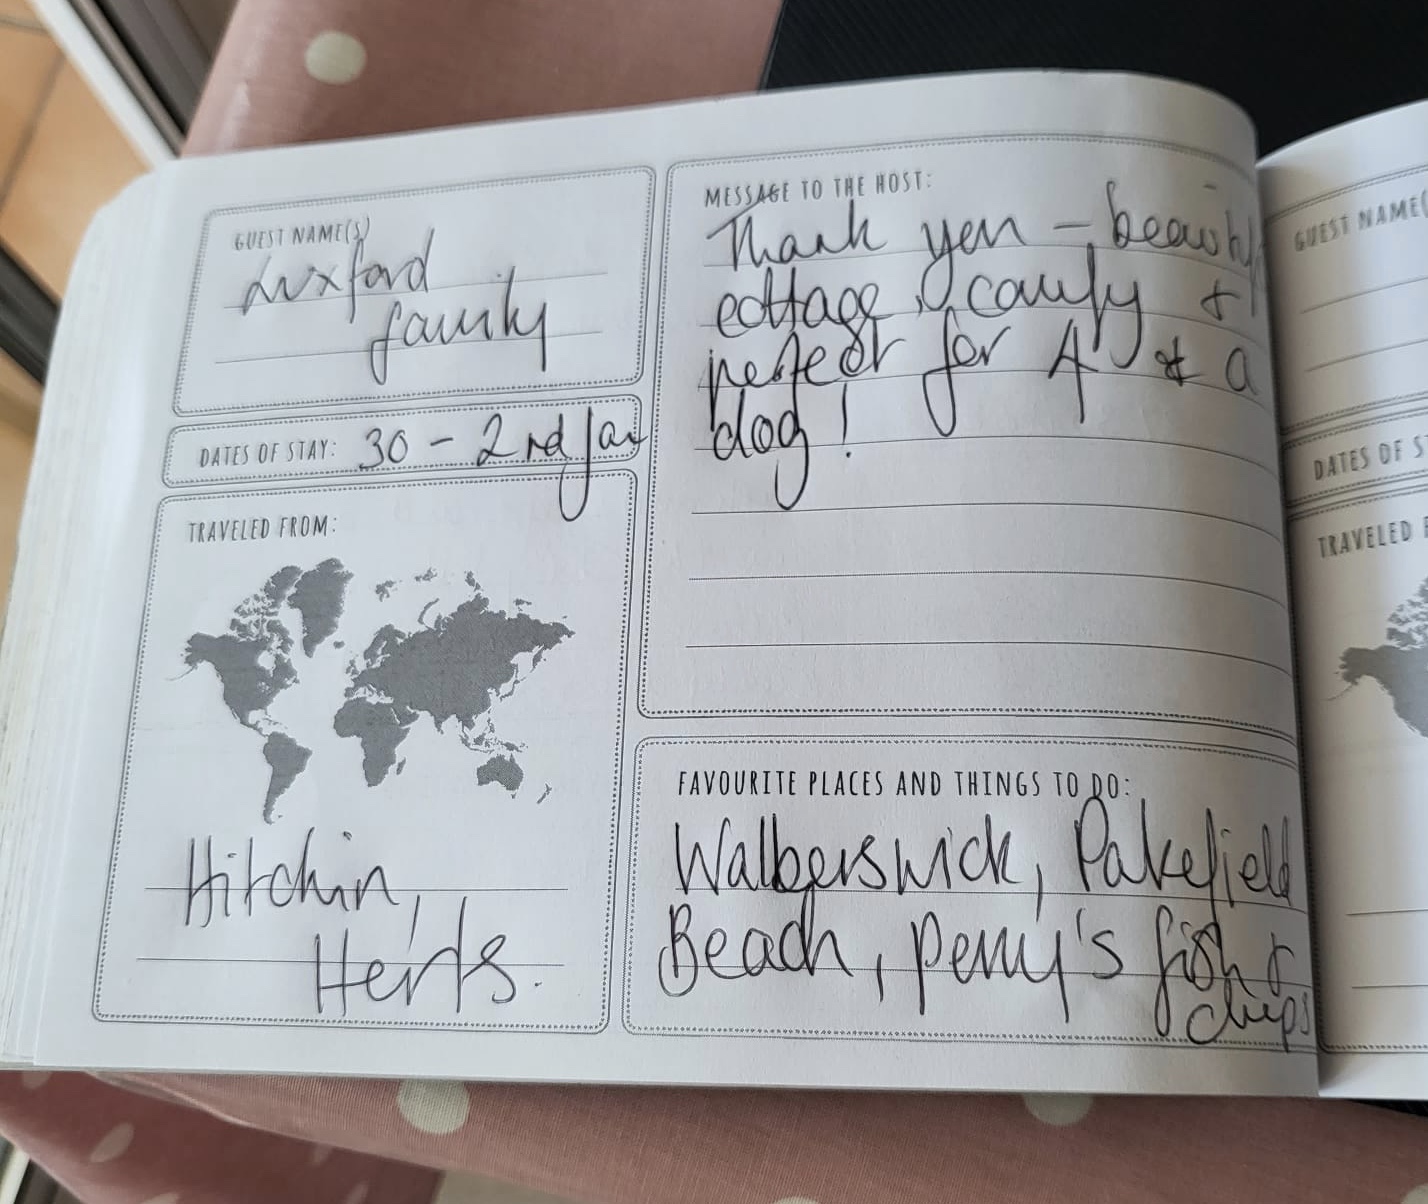 GUEST NAME(S)
Luxford
family
DATES OF STAY: 30 - 2nd Jan
TRAVELED FROM:
Hitchin,
Herts.
MESSAGE TO THE HOST:
Thank you - beautiful
cottage, comfy &
perfect for 4 & a
dog!
FAVOURITE PLACES AND THINGS TO DO:
Walberswick, Pakefield
Beach, perry's fish &
chips
GUEST NAME(
DATES OF S
TRAVELED F